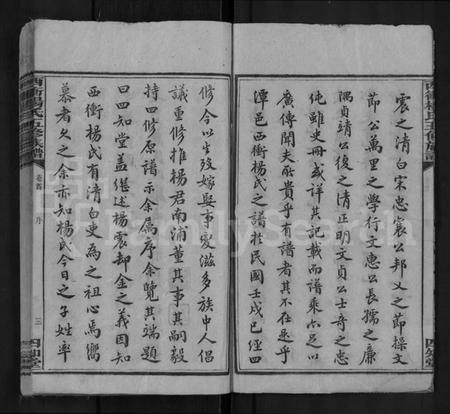 震之清白宋忠襄公邦乂之節操文
節公萬里之學行文惠公長孺之廉
隅貞靖公後之清正明文貞公士奇之忠
純雖史冊或詳其記載而譜乘六足以
廣傳聞夫所貴乎有譜者其不在是乎
潭邑西衝楊氏之譜於民國壬戌已經四
修今以生歿嫁與事變滋多族中人倡
議重修推楊君南浦董其事其嗣毅
持四修原譜示余屬序余覽其端題
曰四知堂蓋繼述楊震却金之義因知
西衝楊氏有清白吏為之祖心焉嚮
慕者久之余亦知楊氏今日之子姓率
西衝楊氏五修族譜
卷首
序
三
四知堂
西衝楊氏五修族譜
四知堂
FamilySearch